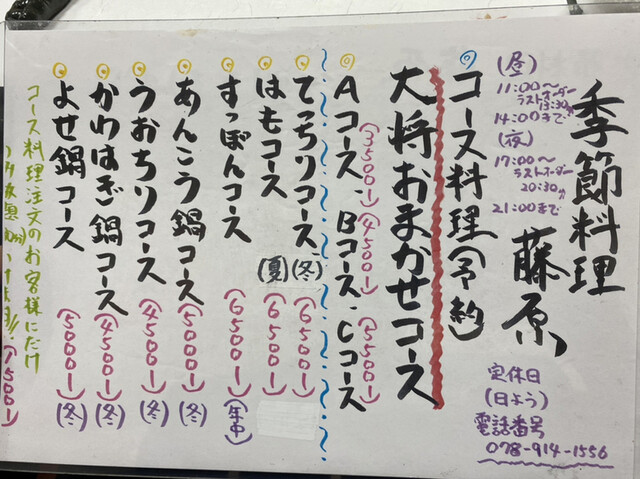 季節料理
藤原
(昼)
11:00〜
ラストオーダー
13:30分
14:00まで
(夜)
17:00〜
ラストオーダー
20:30分
21:00まで
定休日
(日よう)
電話番号
078-914-1556
◎コース料理(予約)
大将おまかせコース
◎Aコース・Bコース・Cコース
(3500ー) (4500ー) (5500ー)
◎てっちりコース(冬)(6500ー)
◎はもコース(夏)(6500ー)
◎すっぽんコース(6500ー)(年中)
◎あんこう鍋コース(5000ー)(冬)
◎うおちりコース(4500ー)(冬)
◎かわはぎ鍋コース(5000ー)(冬)
◎よせ鍋コース(5000ー)(冬)
コース料理注文のお客様にだけ
(1500ー)